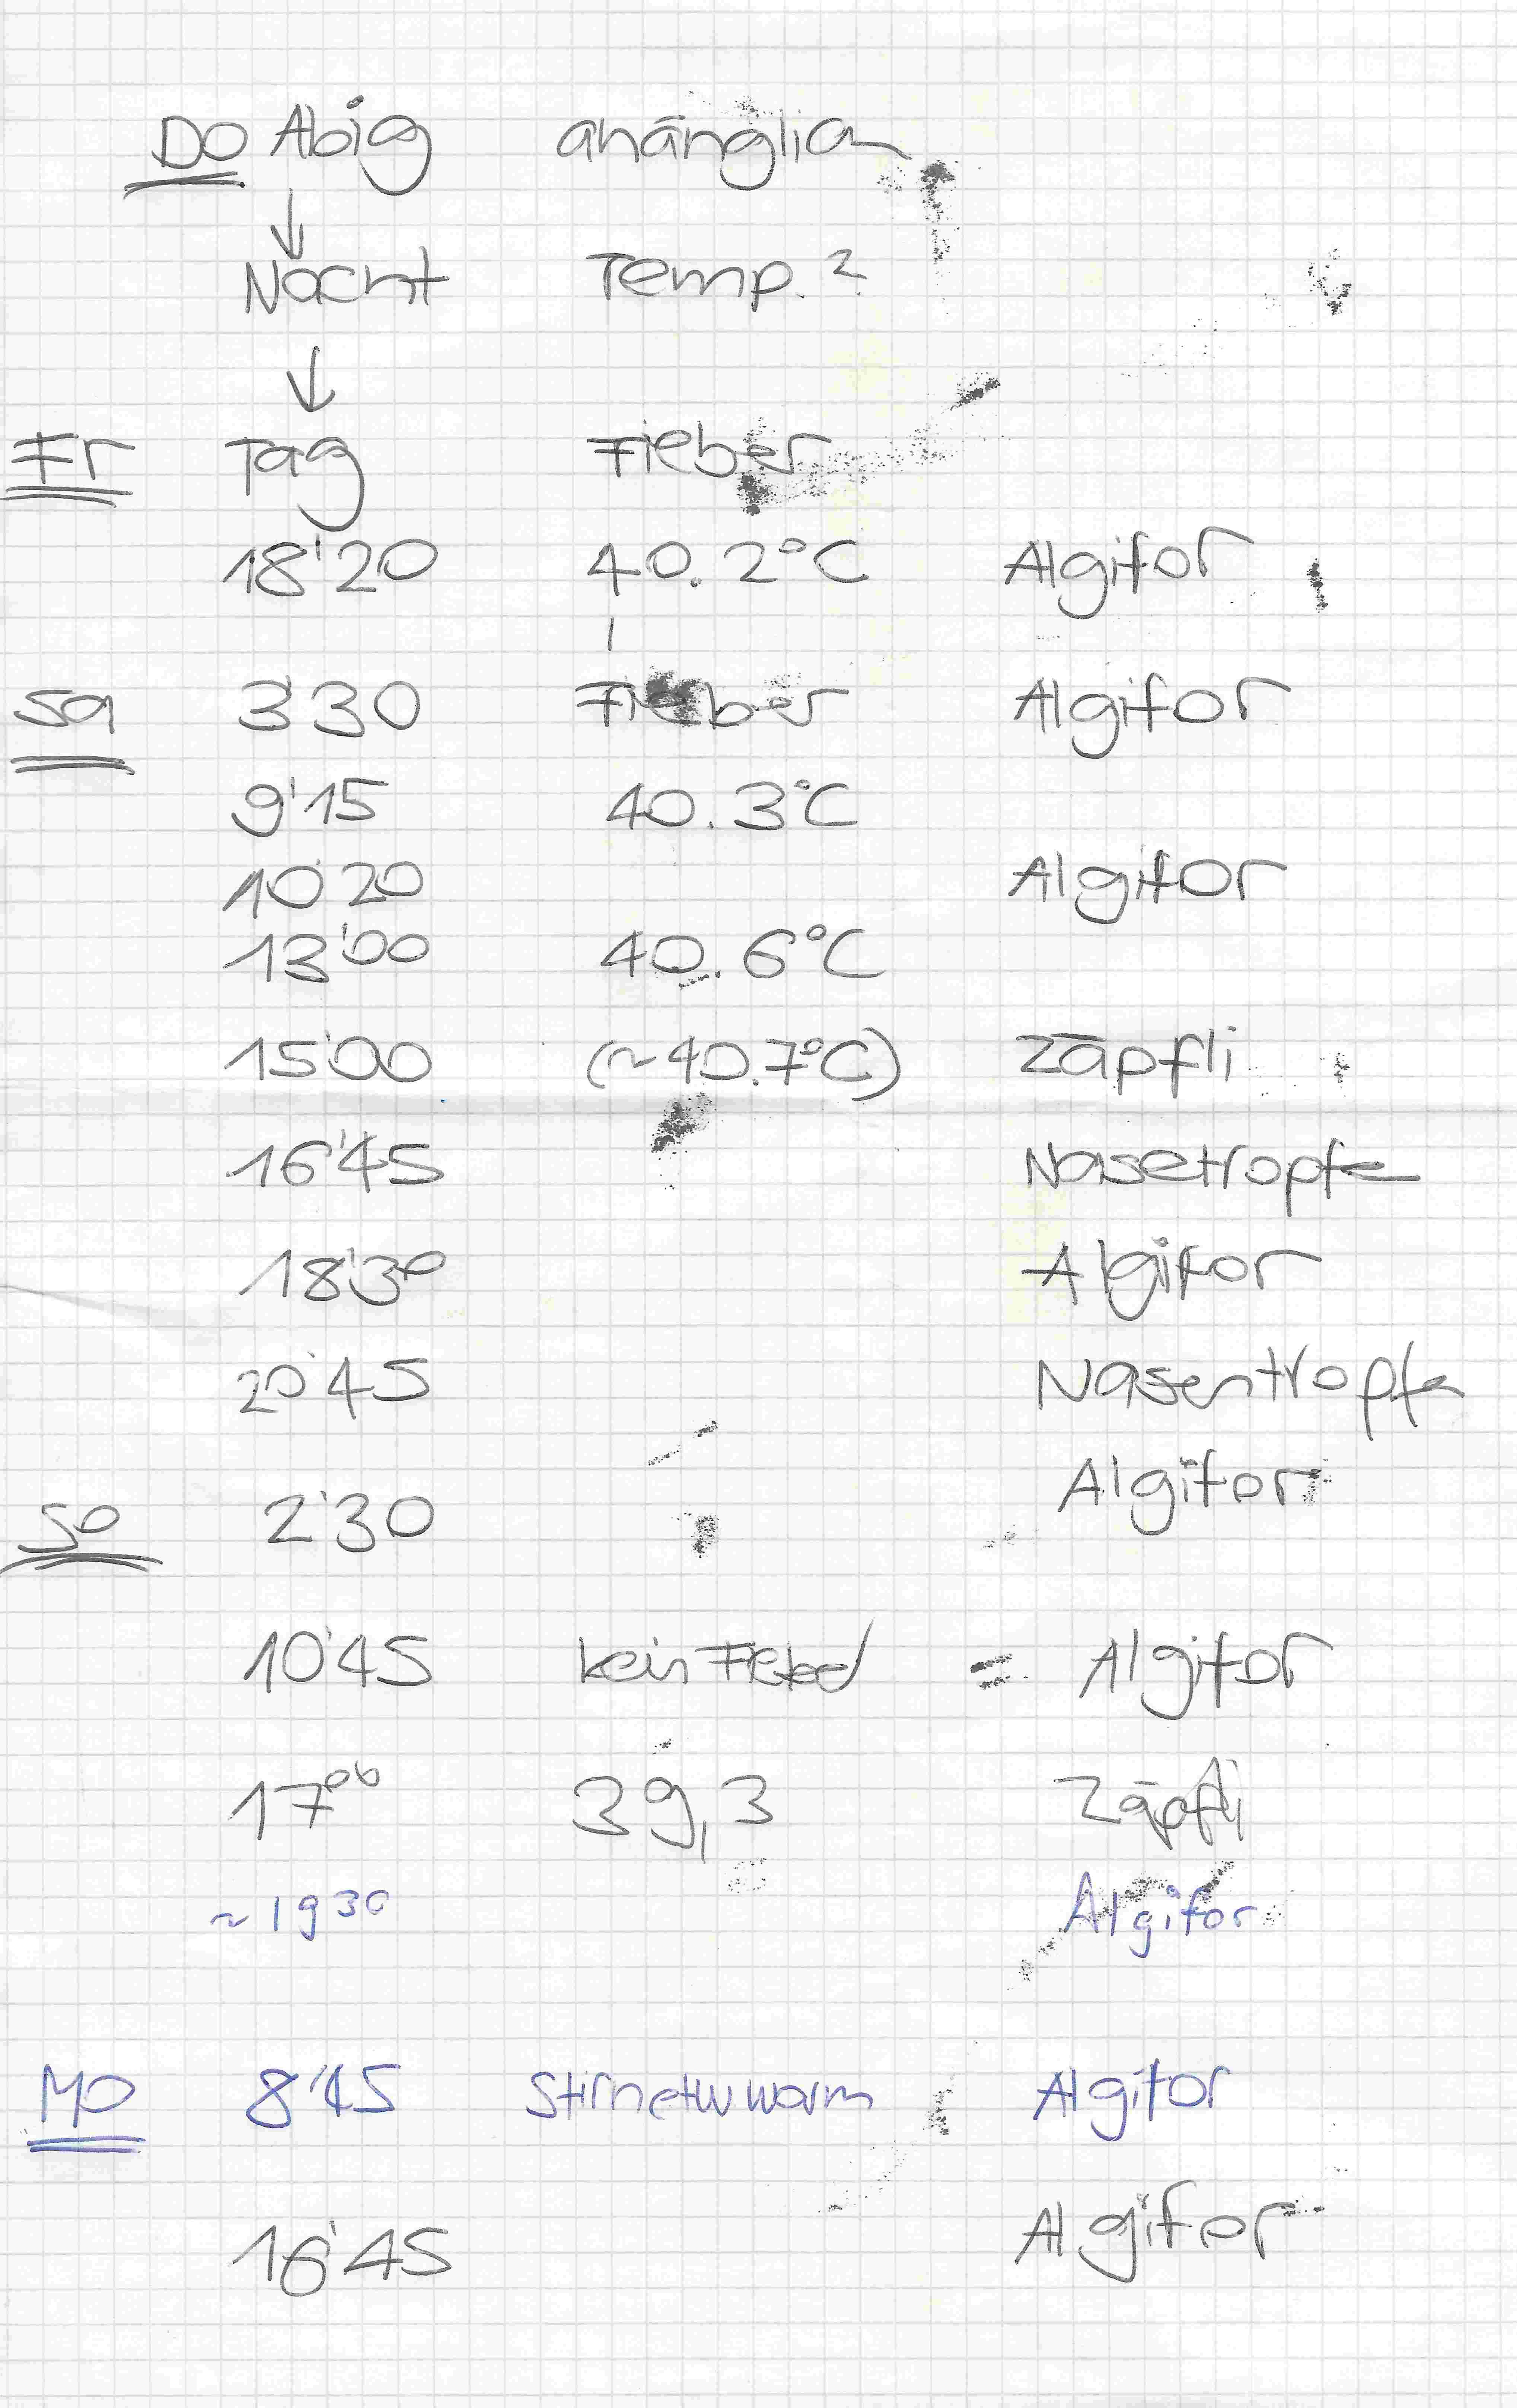 DO Abig anänglia
↓
Nacht Temp. ?
↓
Fr Tag Fieber
18'20 40.2°C Algifor
Sa 3'30 Fieber Algifor
9'15 40.3°C
10'20 Algifor
13'00 40.6°C
15'00 (~40.7°C) Zäpfli
16'45 Nasetropfe
18'30 Algifor
20'45 Nasentropfe
So 2'30 Algifor
10'45 kein Fieber = Algifor
17 00 39,3 Zäpfli
~ 19 30 Algifor
MO 8'45 Stirn etw warm Algifor
16'45 Algifor